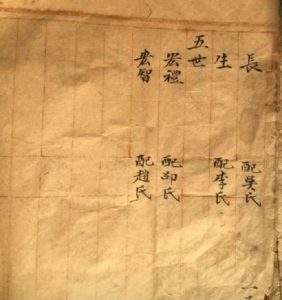 長 配吳氏
生 配李氏
五世
宏禮 配邵氏
宏智 配趙氏